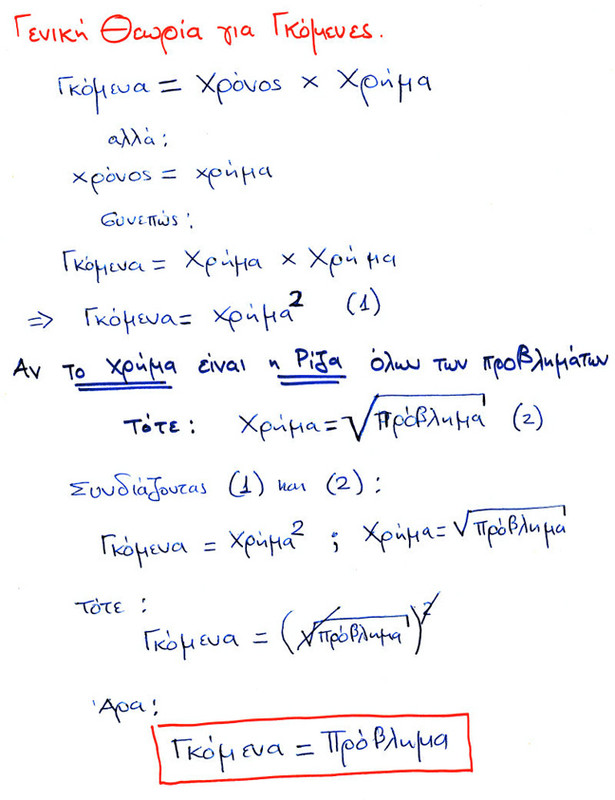 Γενική Θεωρία για Γκόμενες.
Γκόμενα = Χρόνος × Χρήμα
αλλά:
χρόνος = χρήμα
συνεπώς:
Γκόμενα = Χρήμα × Χρήμα
⇒ Γκόμενα = Χρήμα² (1)
Αν το χρήμα είναι η Ρίζα όλων των προβλημάτων
τότε: Χρήμα = √Πρόβλημα (2)
Συνδιάζοντας (1) και (2):
Γκόμενα = Χρήμα² ; Χρήμα = √Πρόβλημα
Τότε:
Γκόμενα = (√Πρόβλημα)²
Άρα:
Γκόμενα = Πρόβλημα